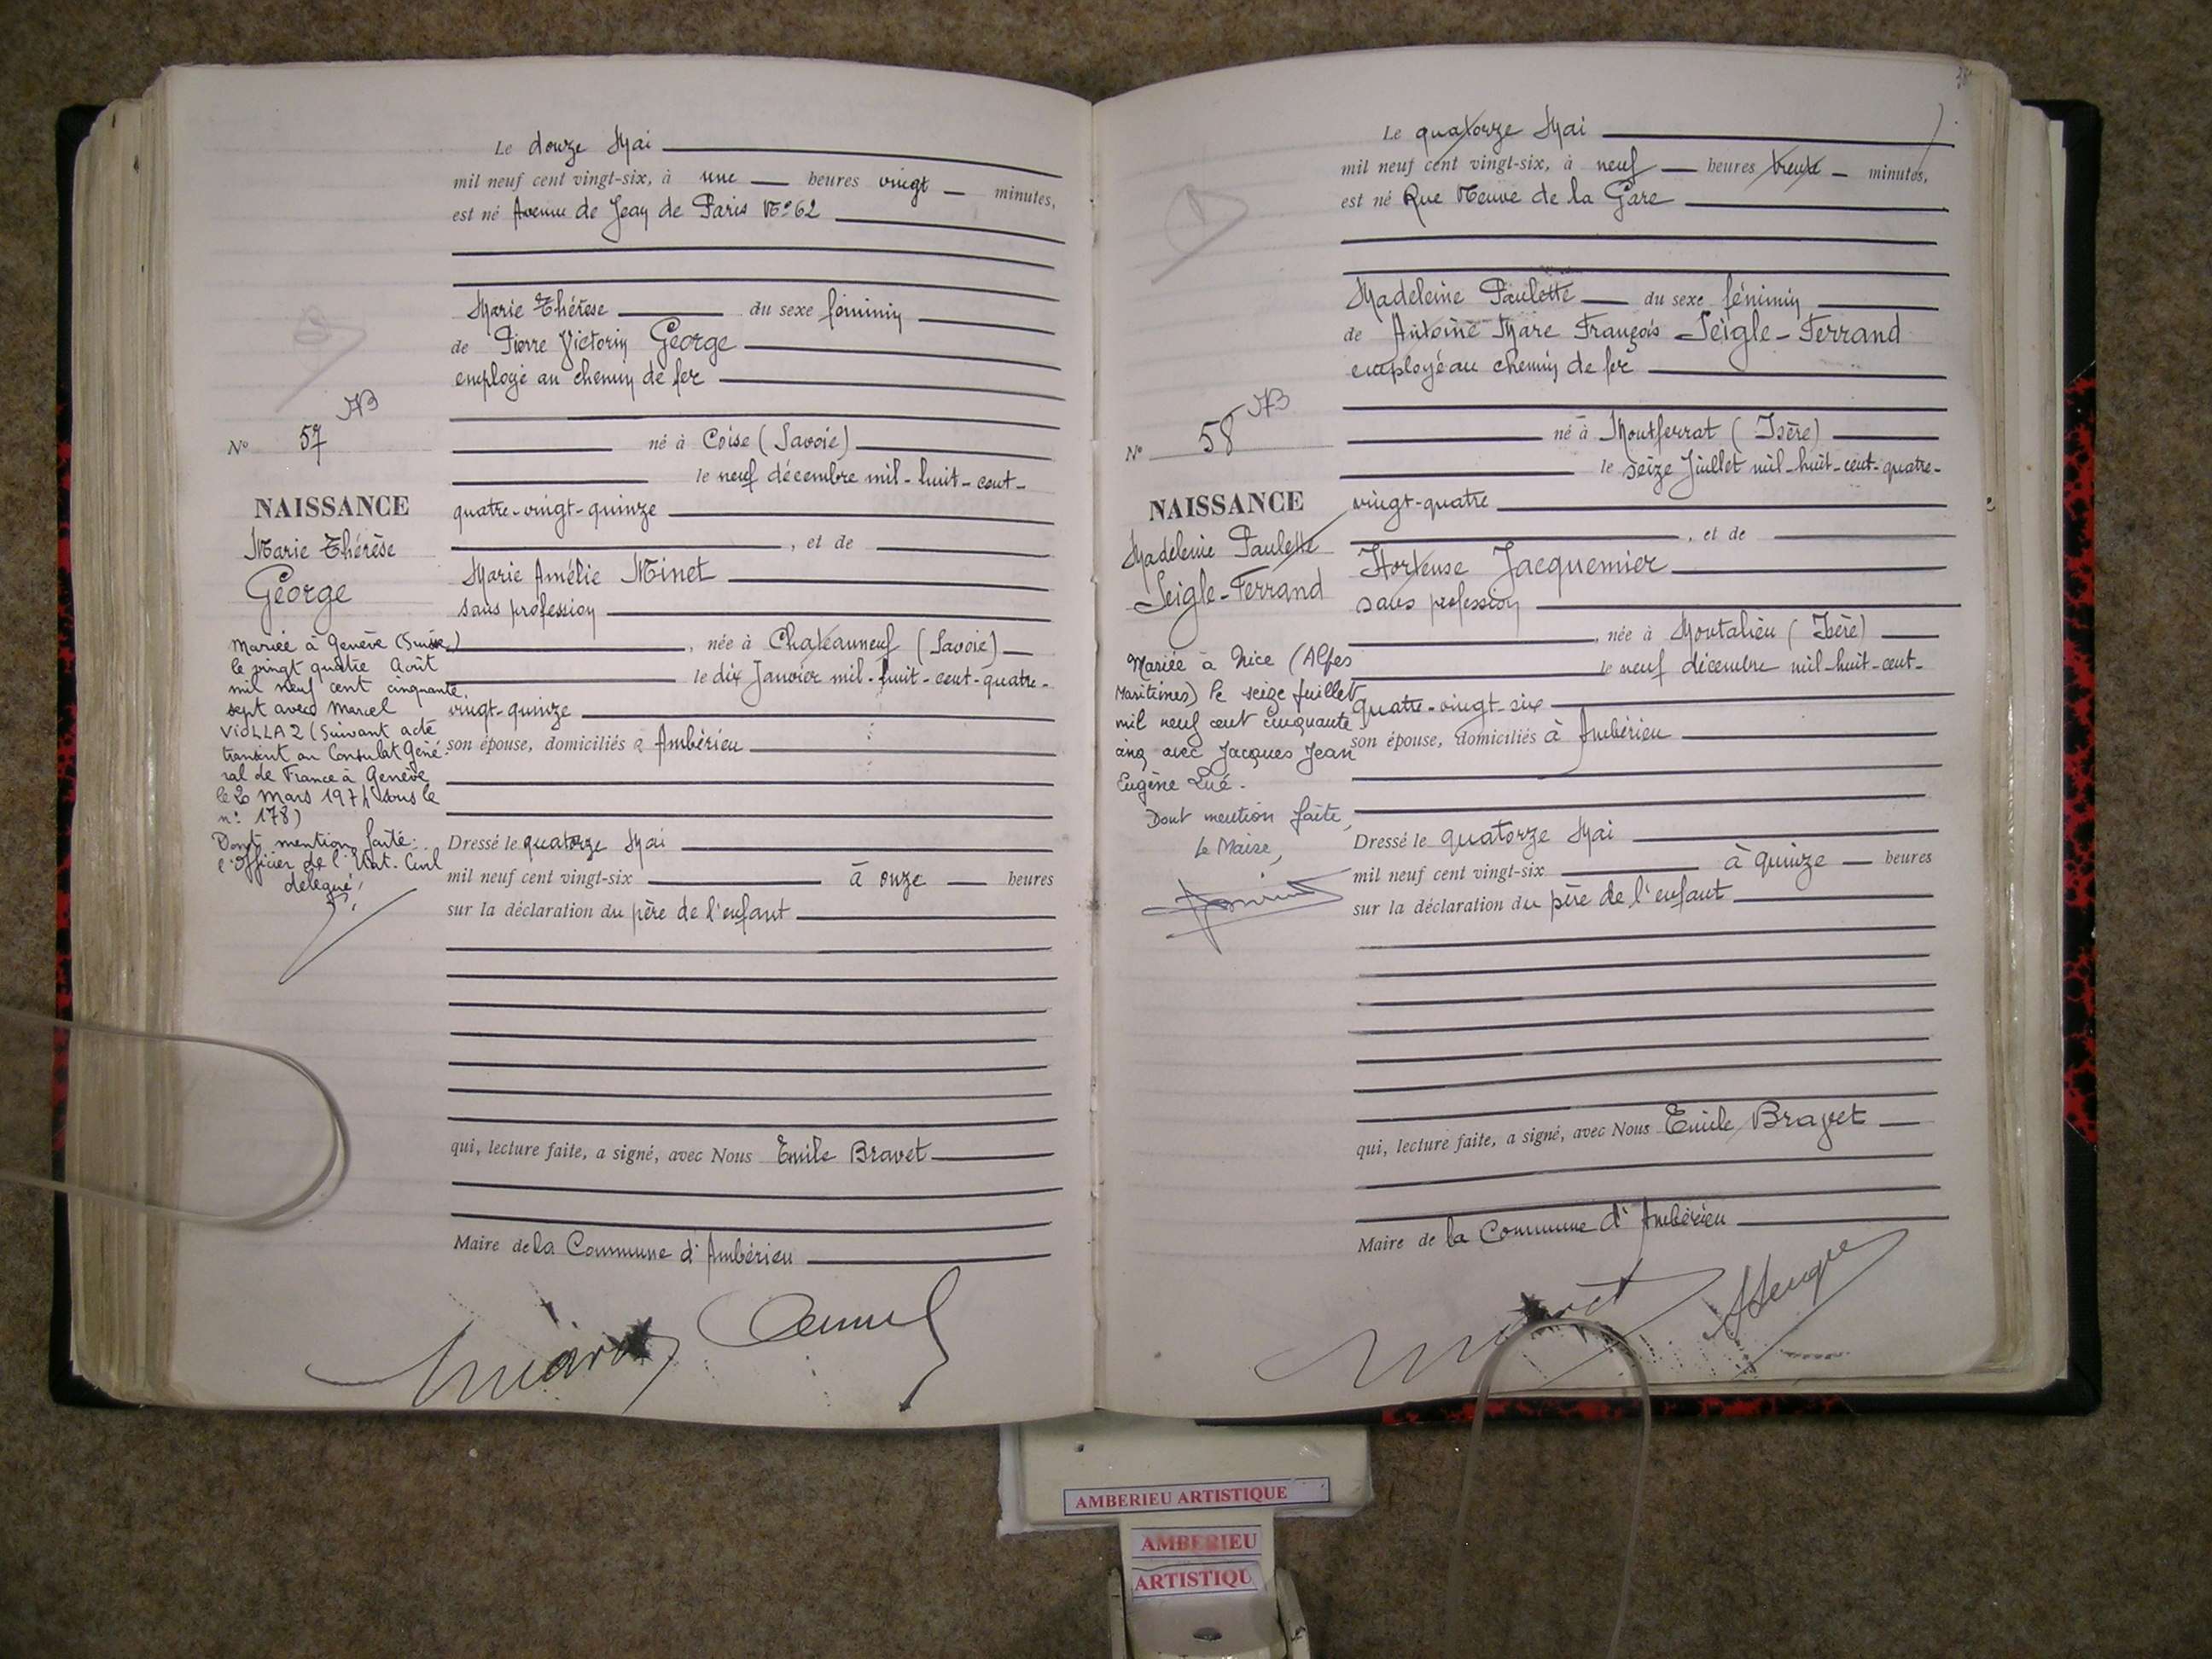 Le douze Mai
mil neuf cent vingt-six, à une heures vingt minutes,
est né Avenue de Jean de Paris N° 62
Marie Thérèse du sexe féminin
de Pierre Victorin George
employé au chemin de fer
né à Coise (Savoie)
le neuf décembre mil-huit-cent-
quatre-vingt-quinze
, et de
Marie Amélie Minet
sans profession
, née à Chateauneuf (Savoie)
le dix Janvier mil-huit-cent-quatre-
vingt-quinze
son épouse, domiciliés à Ambérieu
Dressé le quatorze Mai
mil neuf cent vingt-six à onze heures
sur la déclaration du père de l'enfant
qui, lecture faite, a signé, avec Nous Emile Bravet
Maire de la Commune d'Ambérieu
N° 57
NAISSANCE
Marie Thérèse
George
Mariée à Genève (Suisse)
le vingt quatre Août
mil neuf cent cinquante
sept avec Marcel
(Suivant acte
transcrit au Consulat Géné-
ral de France à Genève
mars 1974 sous le
n° 178)
Dont mention faite:
l'Officier de l'Etat-Civil
délégué,
Le quatorze Mai
mil neuf cent vingt-six, à neuf heures trente minutes,
est né Rue Neuve de la Gare
Madeleine Paulette du sexe féminin
de Antoine Marc François Seigle-Ferrand
employé au chemin de fer
né à Montferrat (Isère)
le seize Juillet mil-huit-cent-quatre-
vingt-quatre
, et de
Hortense Jacquemier
sans profession
, née à Montalieu (Isère)
le neuf décembre mil-huit-cent-
quatre-vingt-six
son épouse, domiciliés à Ambérieu
Dressé le quatorze Mai
mil neuf cent vingt-six à quinze heures
sur la déclaration du père de l'enfant
qui, lecture faite, a signé, avec Nous Emile Bravet
Maire de la Commune d'Ambérieu
N° 58
NAISSANCE
Madeleine Paulette
Seigle-Ferrand
Mariée à Nice (Alpes
Maritimes) le seize Juillet
mil neuf cent cinquante
cinq avec Jacques Jean
Eugène
Dont mention faite,
Le Maire,
AMBERIEU ARTISTIQUE
AMBERIEU
ARTISTIQU